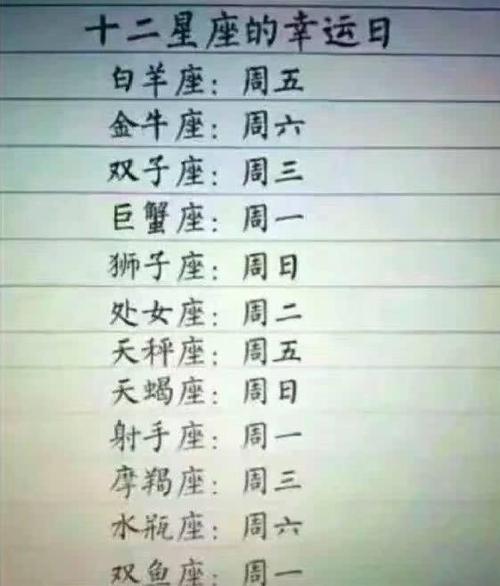 十二星座的幸运日
白羊座：周五
金牛座：周六
双子座：周三
巨蟹座：周一
狮子座：周日
处女座：周二
天秤座：周五
天蝎座：周日
射手座：周一
摩羯座：周三
水瓶座：周六
双鱼座：周一